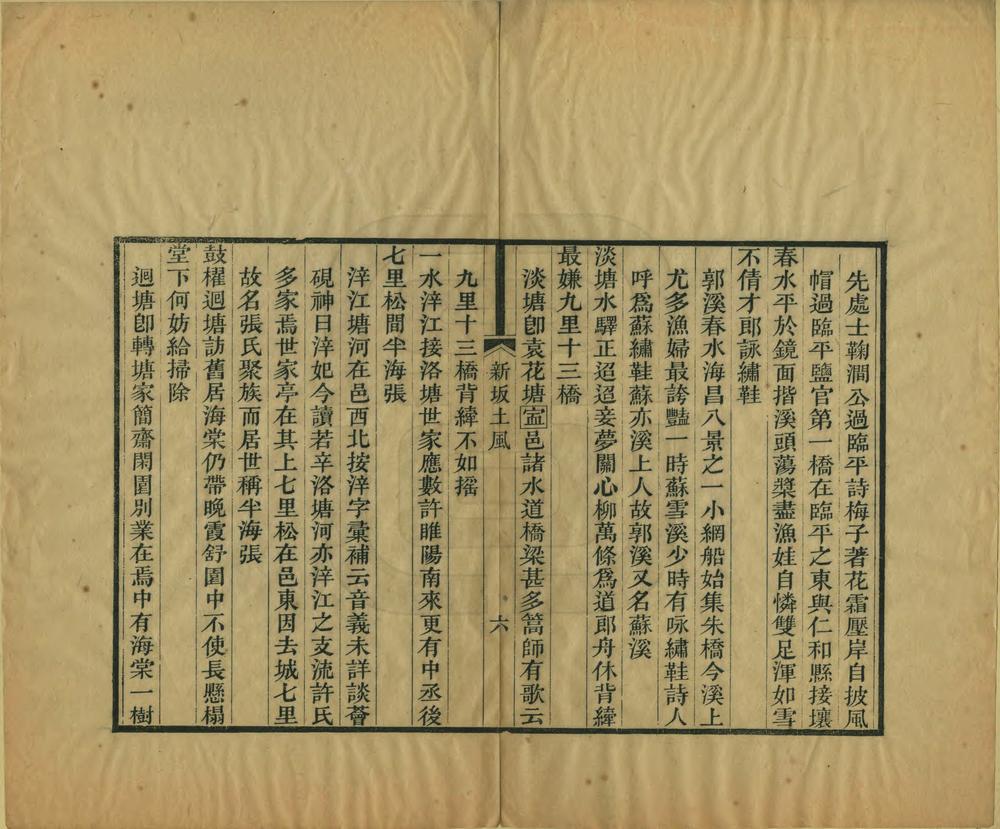 先處士鞠澗公過臨平詩梅子著花霜壓岸自披風
帽過臨平鹽官第一橋在臨平之東與仁和縣接壤
春水平於鏡面揩溪頭蕩槳盡漁娃自憐雙足渾如雪
不倩才郎詠繡鞋
郭溪春水海昌八景之一小網船始集朱橋今溪上
尤多漁婦最誇豔一時蘇雪溪少時有咏繡鞋詩人
呼爲蘇繡鞋蘇亦溪上人故郭溪又名蘇溪
淡塘水驛正迢迢妾夢關心柳萬條爲道郎舟休背緯
最嫌九里十三橋
淡塘卽袁花塘寍邑諸水道橋梁甚多篙師有歌云
新坂土風
六
九里十三橋背緯不如摇
一水淬江接洛塘世家應數許睢陽南來更有中丞後
七里松間半海張
淬江塘河在邑西北按淬字彙補云音義未詳談薈
硯神曰淬妃今讀若辛洛塘河亦淬江之支流許氏
多家焉世家亭在其上七里松在邑東因去城七里
故名張氏聚族而居世稱半海張
鼓櫂迴塘訪舊居海棠仍帶晚霞舒園中不使長懸榻
堂下何妨給掃除
迴塘卽轉塘家簡齋閑園別業在焉中有海棠一樹